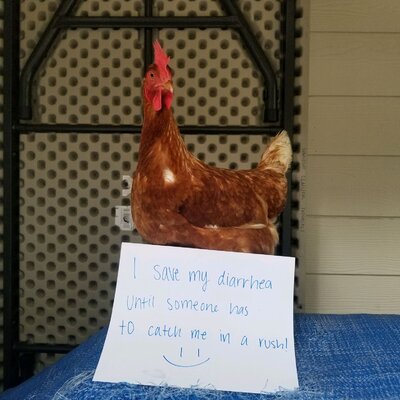 I save my diarrhea
until someone has
to catch me in a rush!